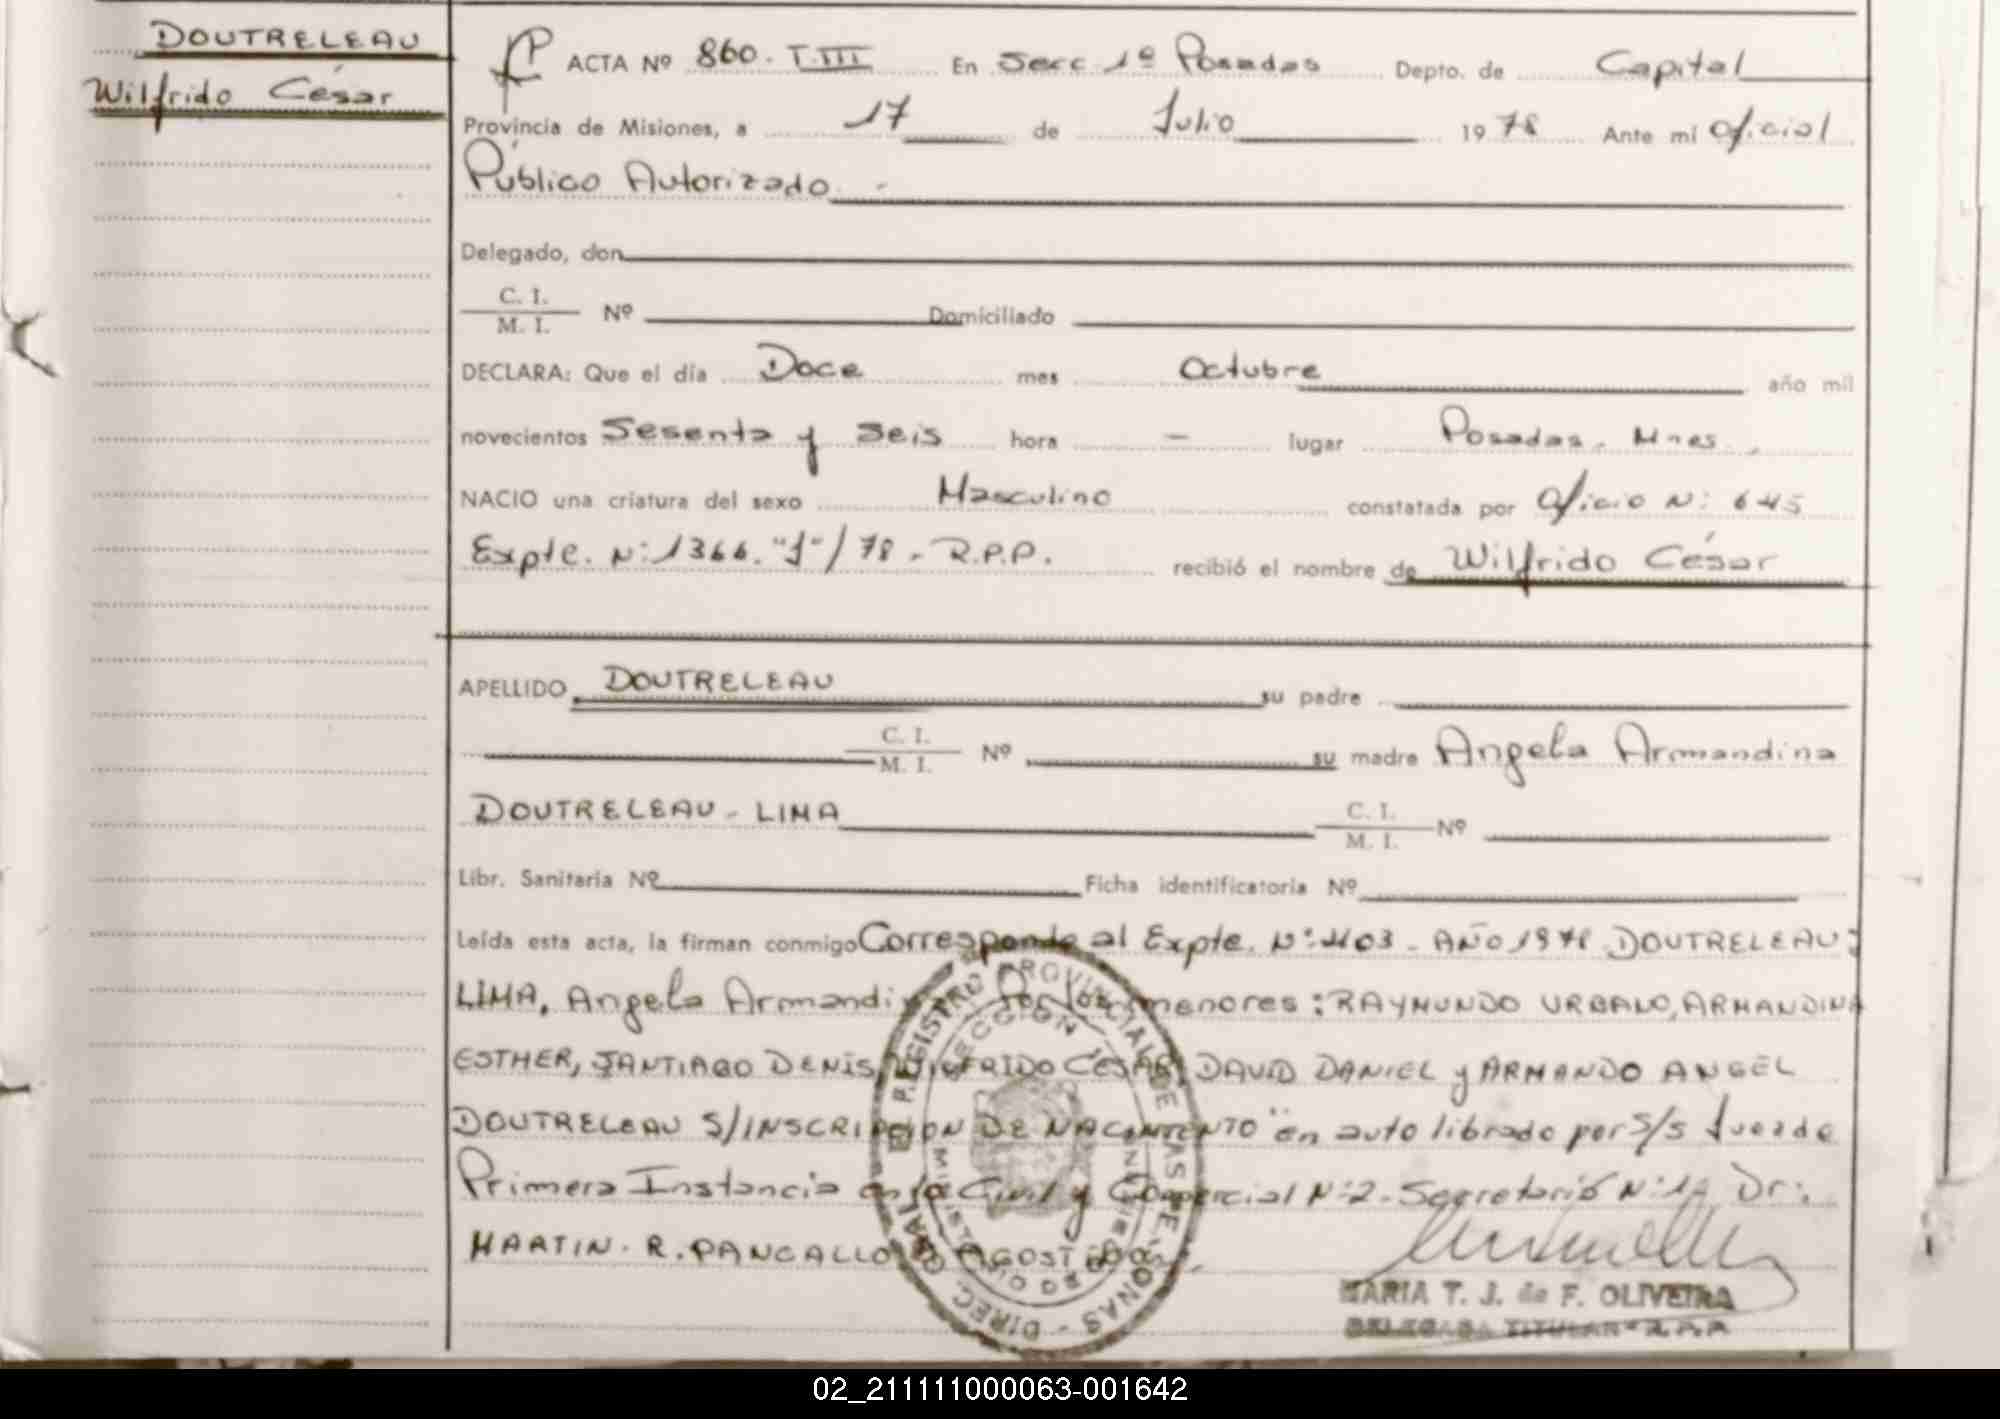 DOUTRELEAU
Wilfrido César
ACTA Nº 860. T.III En Secc 1º Posadas Depto. de Capital
Provincia de Misiones, a 17 de Julio 1978 Ante mi Oficial
Público Autorizado
Delegado, don
C. I.
M. I. Nº Domiciliado
DECLARA: Que el día Doce mes Octubre año mil
novecientos Sesenta y Seis hora - lugar Posadas. Mnes.
NACIO una criatura del sexo Masculino constatada por Oficio N: 645
Expte. N: 1366. "J"/78 - R.P.P. recibió el nombre de Wilfrido César
APELLIDO DOUTRELEAU su padre
C. I.
M. I. Nº su madre Angela Armandina
DOUTRELEAU - LIMA C. I.
M. I. Nº
Libr. Sanitaria Nº Ficha identificatoria Nº
Leída esta acta, la firman conmigo Corresponde al Expte. AÑO 1978 DOUTRELEAU
LIMA, Angela Armandina Por los menores: RAYMUNDO URBANO, ARMANDINA
ESTHER, SANTIAGO DENIS, WILFRIDO CESAR, DAVID DANIEL y ARMANDO ANGEL
DOUTRELEAU S/INSCRIPCION DE NACIMIENTO" en auto librado por S/S Juez de
Primera Instancia en lo Civil y Comercial Nº 2 - Secretaría Nº 1, Dr.
MARTIN. R. PANCALLO
DIREC. GRAL. REGISTRO PROVINCIAL DE LAS PERSONAS
SECCION
MARIA T. J. de F. OLIVEIRA
DELEGADA TITULAR
02_211111000063-001642